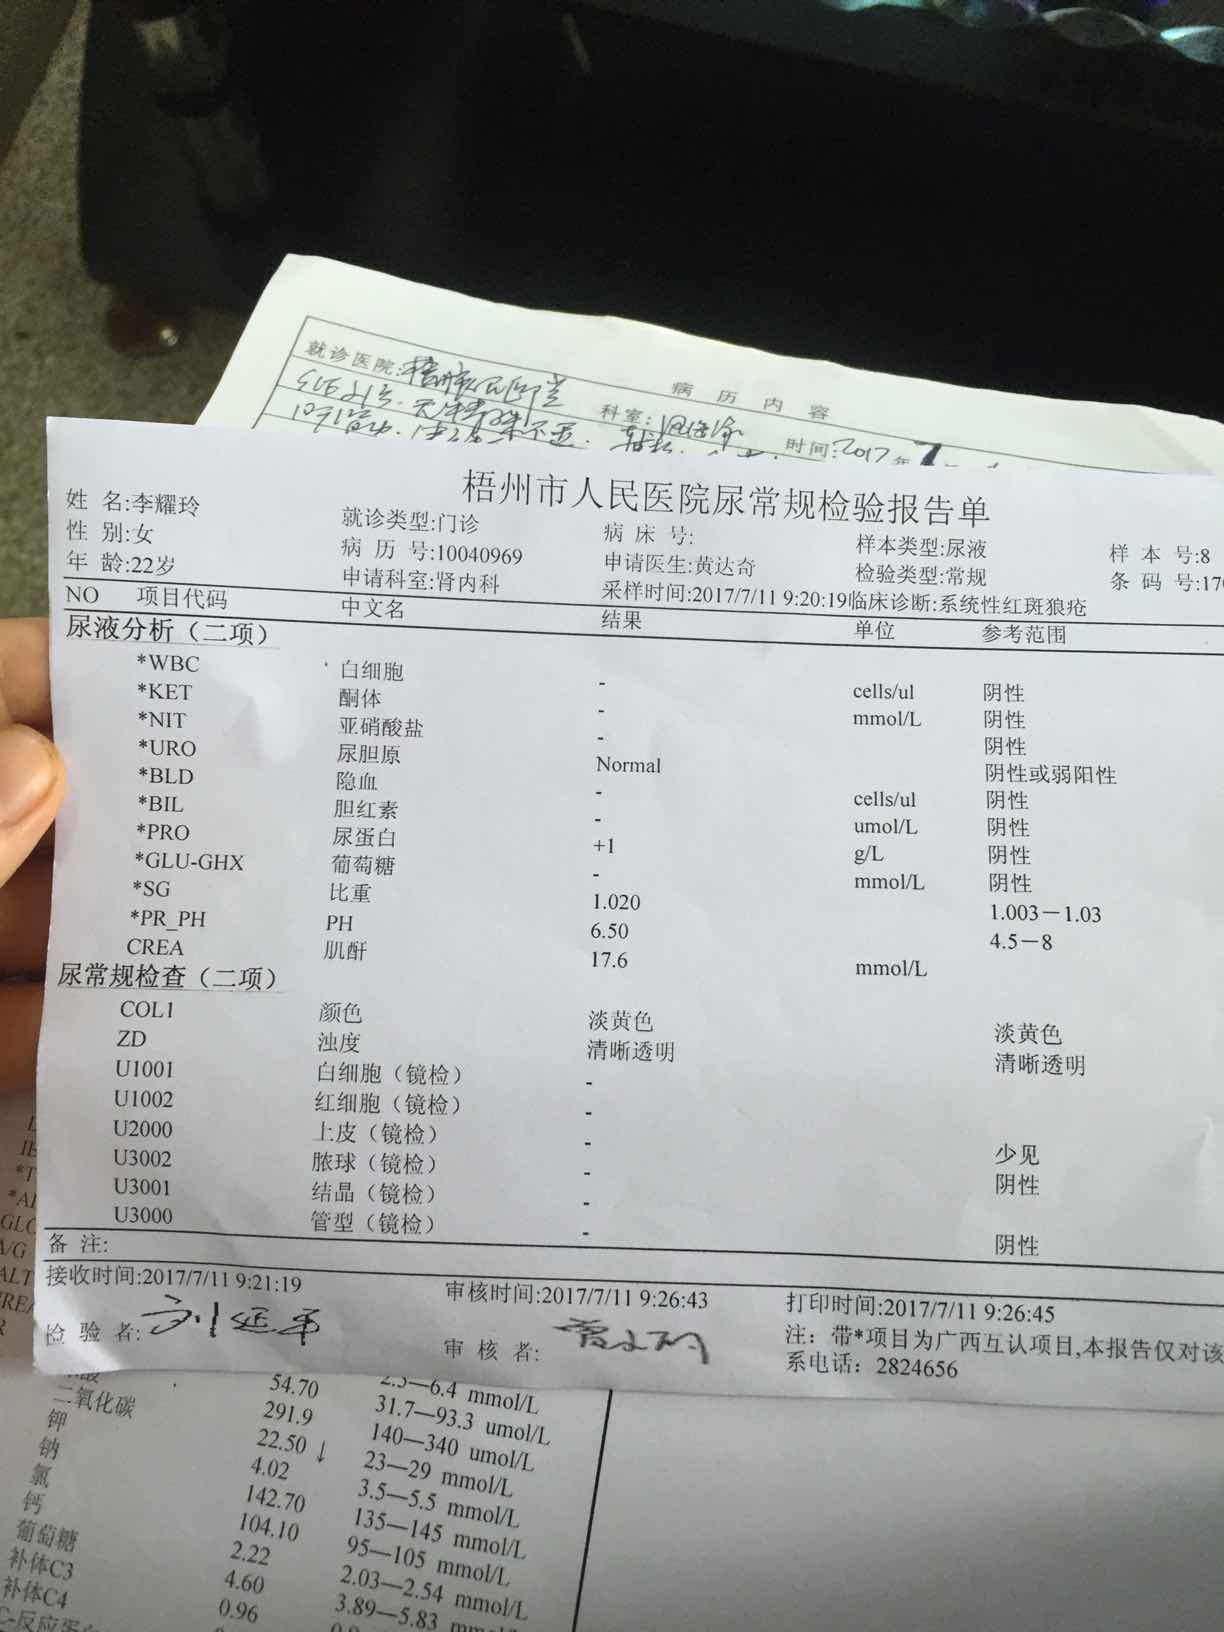 就诊医院:
病 历 内 容
科室:
时间:2017年7
梧州市人民医院尿常规检验报告单
姓 名:李耀玲 就诊类型:门诊 病 床 号: 样本类型:尿液 样 本 号:8
性 别:女 病 历 号:10040969 申请医生:黄达奇 检验类型:常规 条 码 号:170
年 龄:22岁 申请科室:肾内科 采样时间:2017/7/11 9:20:19 临床诊断:系统性红斑狼疮
NO 项目代码 中文名 结果 单位 参考范围
尿液分析（二项）
*WBC 白细胞 - cells/ul 阴性
*KET 酮体 - mmol/L 阴性
*NIT 亚硝酸盐 - 阴性
*URO 尿胆原 Normal 阴性或弱阳性
*BLD 隐血 - cells/ul 阴性
*BIL 胆红素 - umol/L 阴性
*PRO 尿蛋白 +1 g/L 阴性
*GLU-GHX 葡萄糖 - mmol/L 阴性
*SG 比重 1.020 1.003－1.03
*PR_PH PH 6.50 4.5－8
CREA 肌酐 17.6 mmol/L
尿常规检查（二项）
COL1 颜色 淡黄色 淡黄色
ZD 浊度 清晰透明 清晰透明
U1001 白细胞（镜检） -
U1002 红细胞（镜检） -
U2000 上皮（镜检） - 少见
U3002 脓球（镜检） - 阴性
U3001 结晶（镜检） -
U3000 管型（镜检） - 阴性
备 注:
接收时间:2017/7/11 9:21:19 审核时间:2017/7/11 9:26:43 打印时间:2017/7/11 9:26:45
检 验 者: 审 核 者: 注：带*项目为广西互认项目,本报告仅对该
系电话：2824656
2.5—6.4 mmol/L
54.70 31.7—93.3 umol/L
二氧化碳 291.9 140—340 umol/L
钾 22.50 ↓ 23—29 mmol/L
钠 4.02 3.5—5.5 mmol/L
氯 142.70 135—145 mmol/L
钙 104.10 95—105 mmol/L
葡萄糖 2.22 2.03—2.54 mmol/L
补体C3 4.60 3.89—5.83
补体C4 0.96
C-反应蛋白